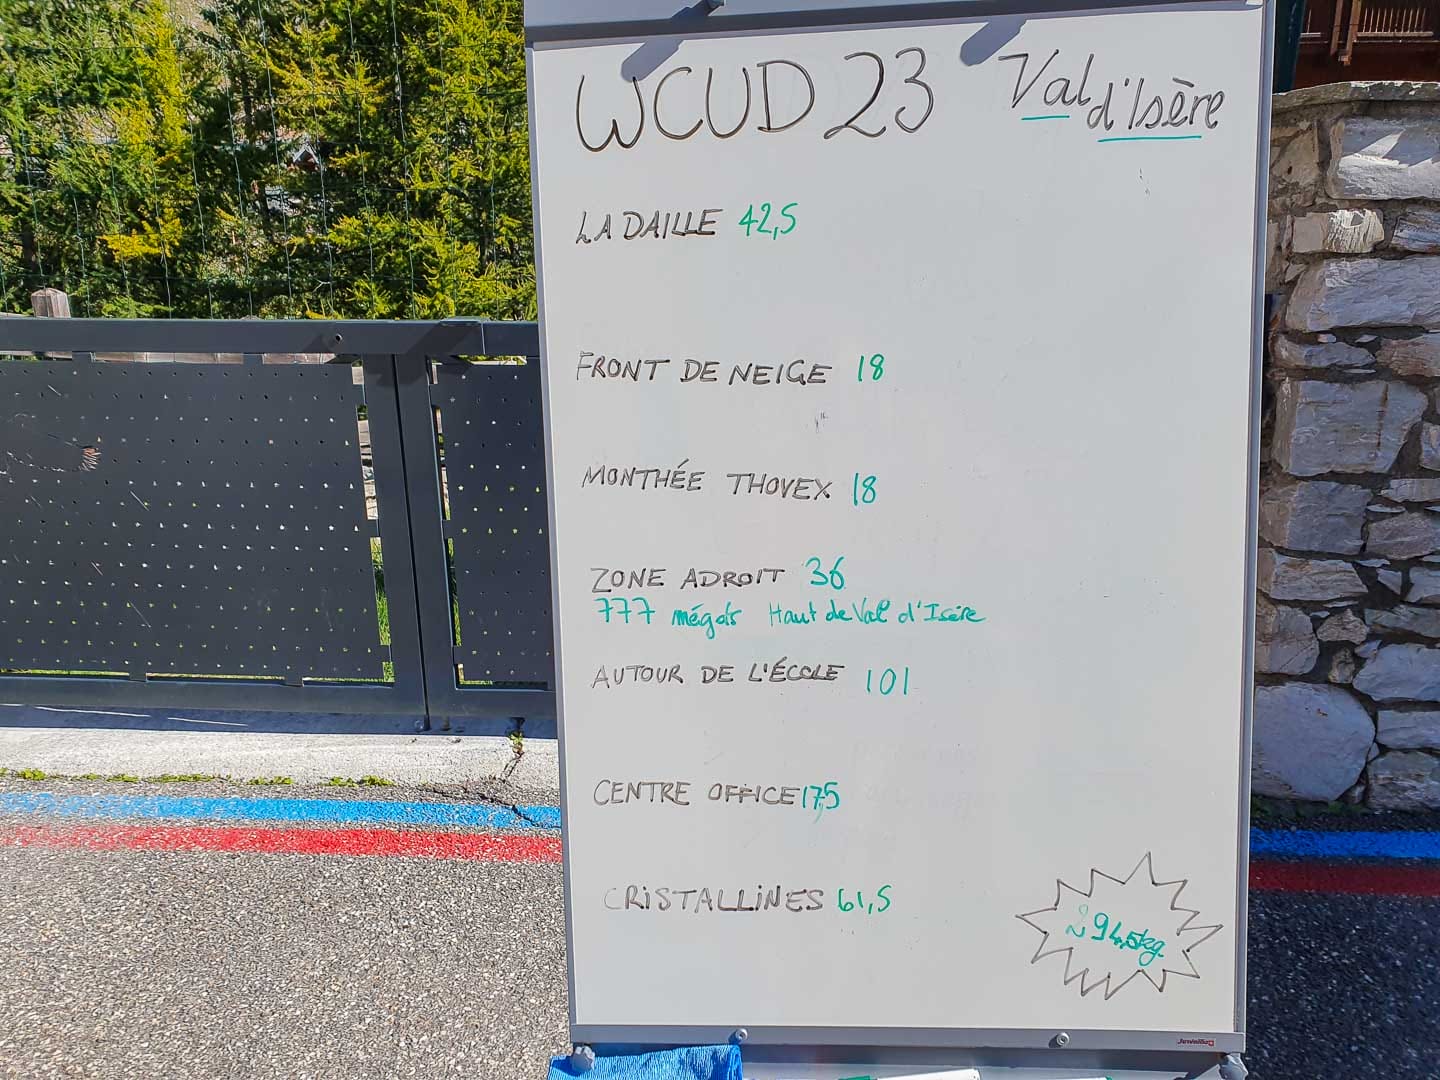 WCUD 23 Val d'Isère
LA DAILLE 42,5
FRONT DE NEIGE 18
MONTHÉE THOVEX 18
ZONE ADROIT 36
777 mégots Haut de Val d'Isère
AUTOUR DE L'ÉCOLE 101
CENTRE OFFICE 17,5
CRISTALLINES 61,5
294,5kg